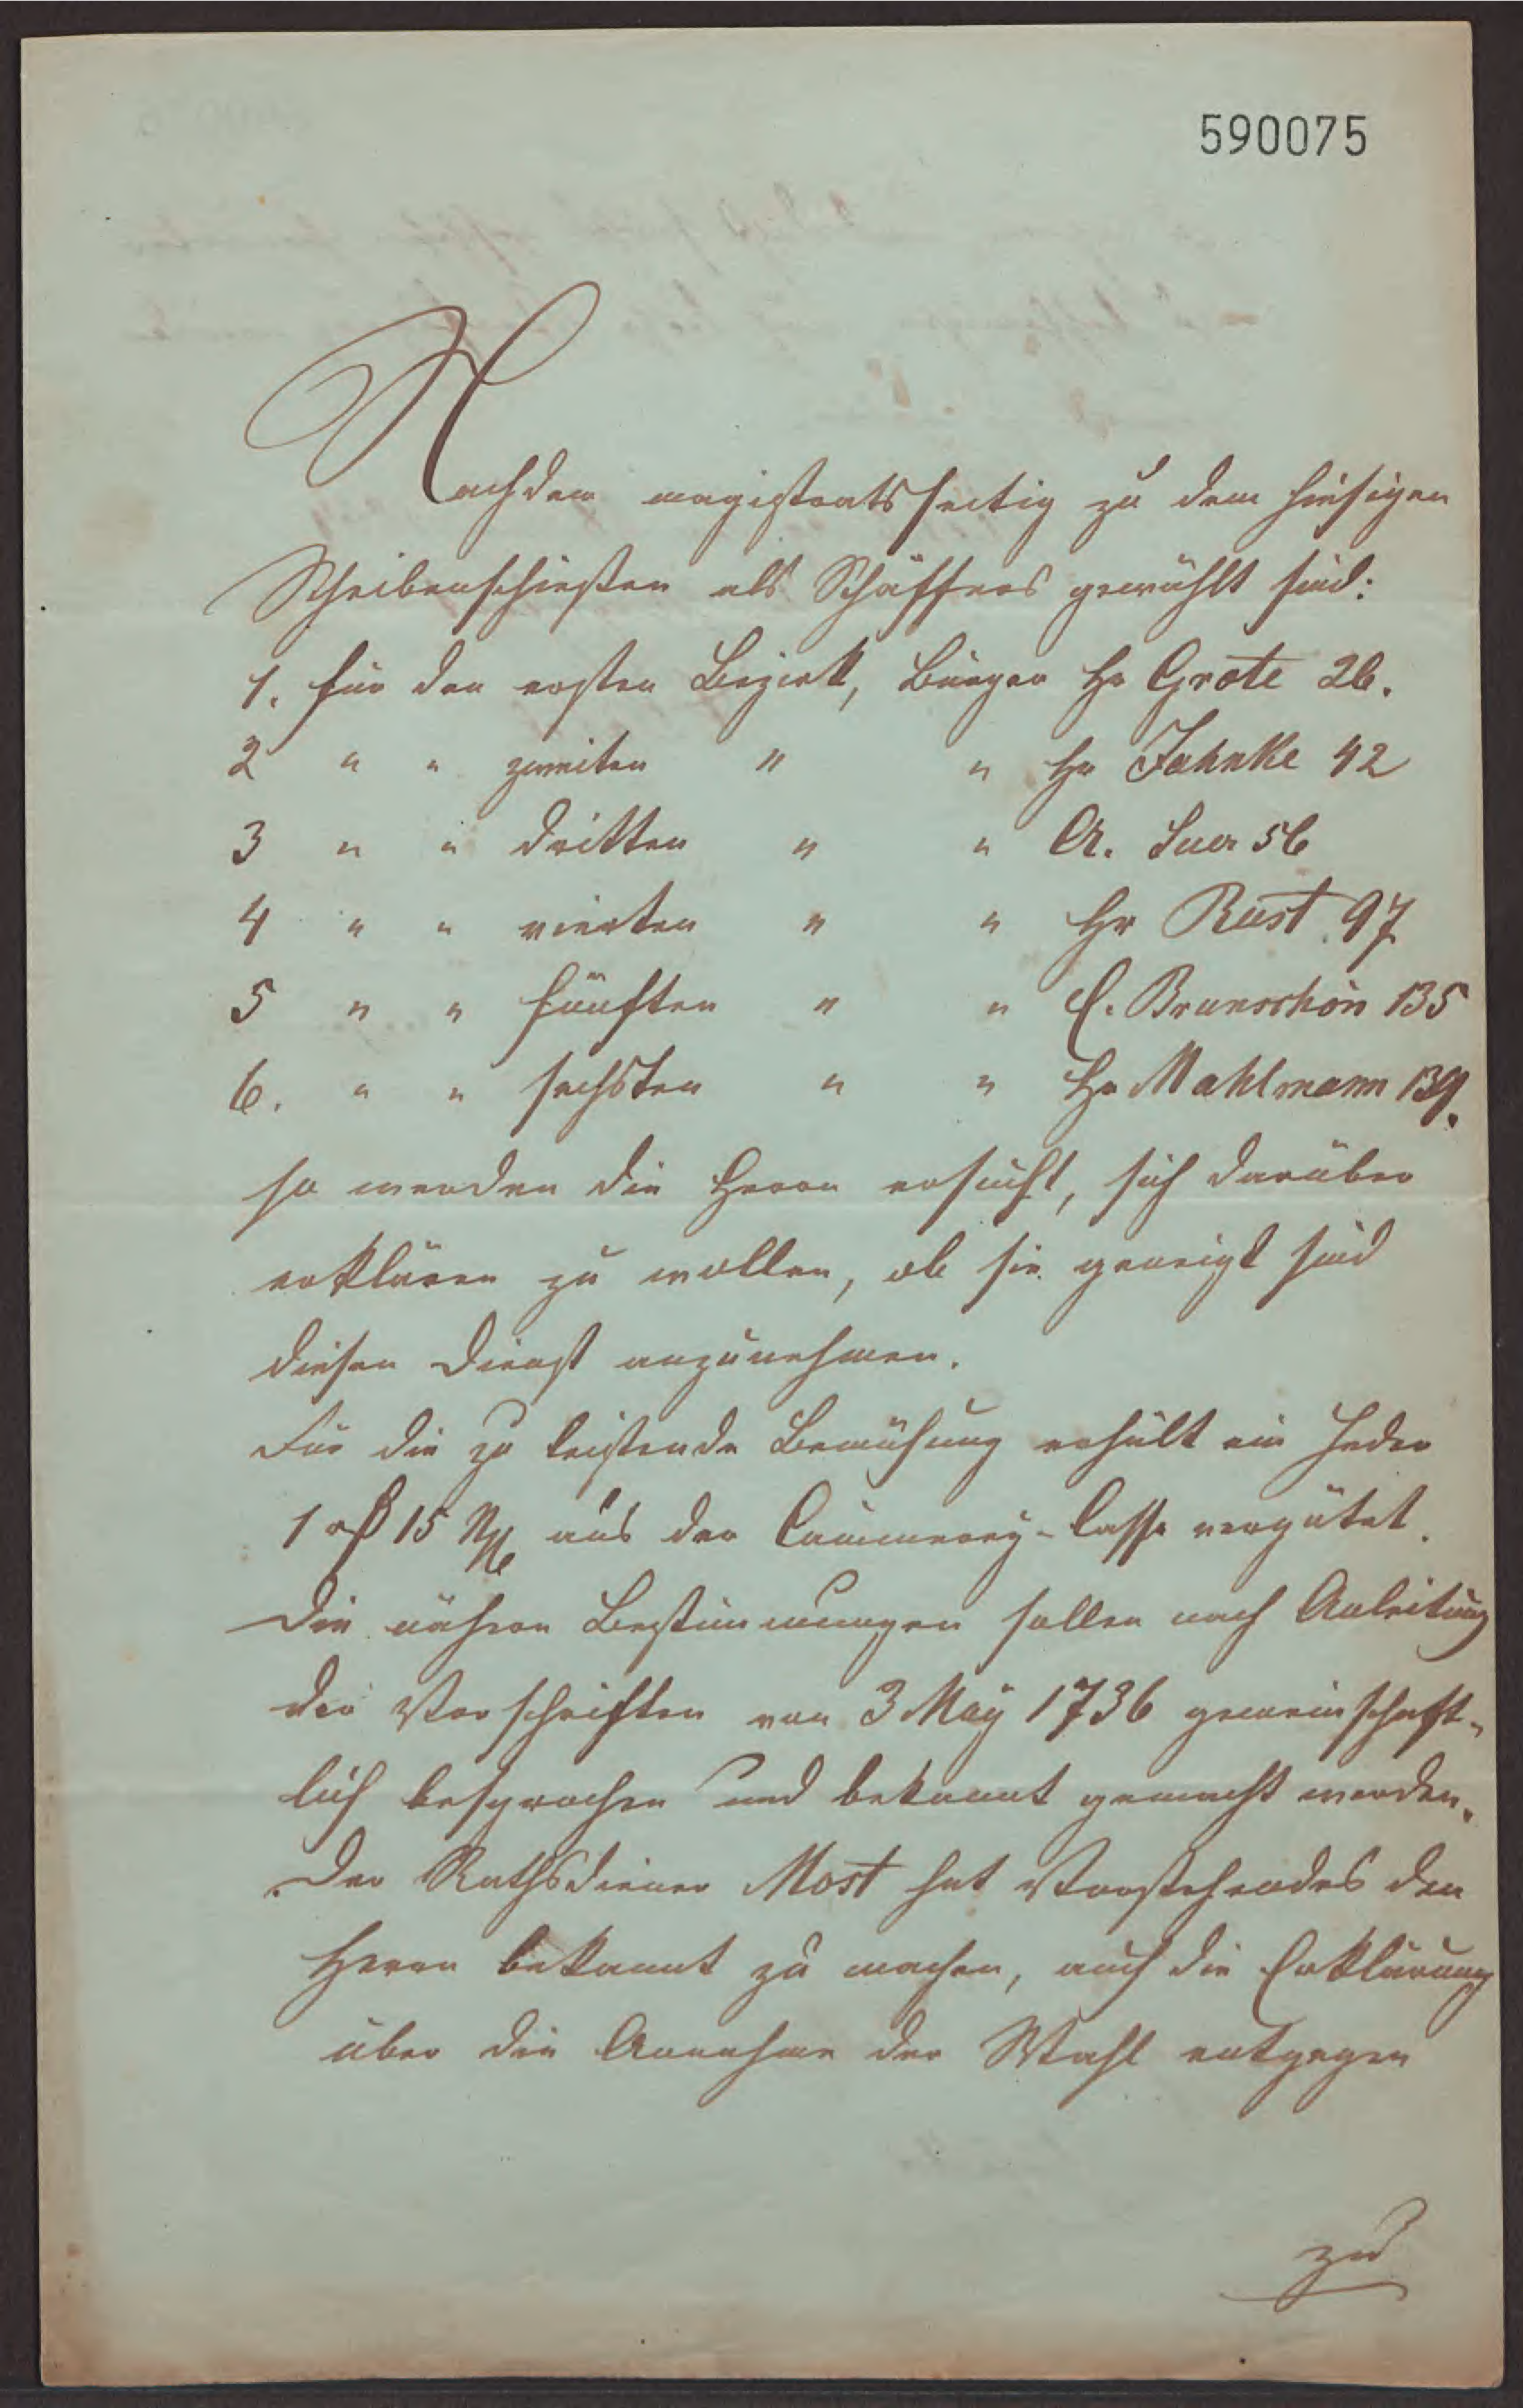 590075
Nachdem magistratsseitig zu dem hiesigen
Scheibenschießen als Schäffers gewählt sind:
1. für den ersten Bezirk, Bürger Hr Grote 26.
2 " " zweiten " " Hr Jahnke 42
3 " " dritten " " A. Suer 56
4 " " vierten " " Hr Rust 97
5 " " fünften " " C. Brunschön 135
6. " " sechsten " " Hr Mahlmann 139.
so werden die Herrn ersucht, sich darüber
erklären zu wollen, ob sie geneigt sind
diesen Dienst anzunehmen.
Für die zu leistende Bemühung erhält ein Jeder
1 rß 15 Ng aus der Cämmerey-Casse vergütet.
Die nähern Bestimmungen sollen nach Anleitung
der Vorschriften von 3 May 1736 gemeinschaft-
lich besprochen und bekannt gemacht werden.
Der Rathsdiener Most hat Vorstehendes den
Herrn bekannt zu machen, auch die Erklärung
über die Annahme der Wahl entgegen
zu